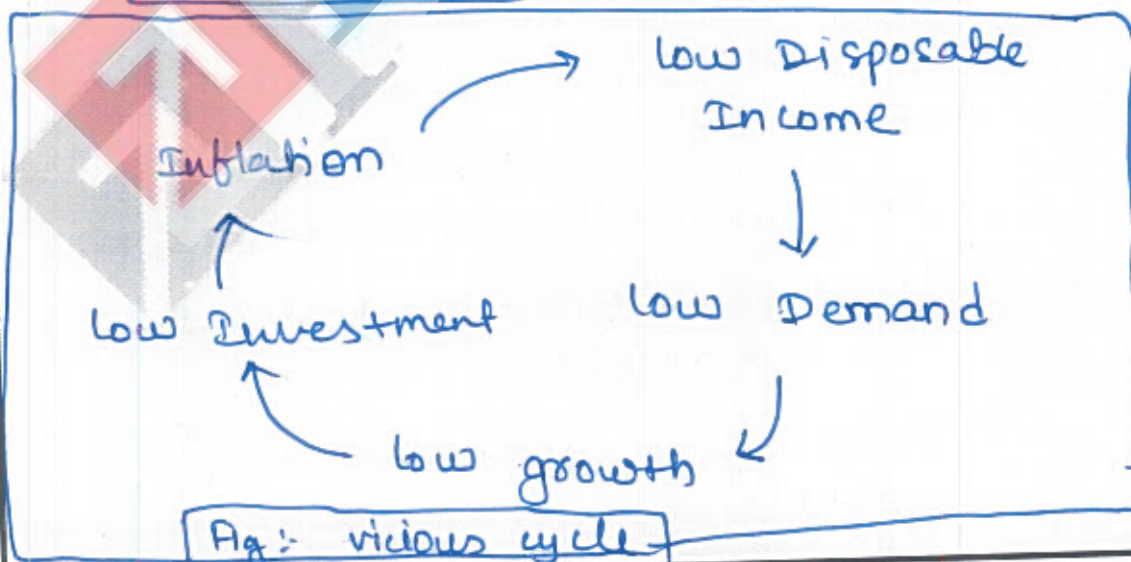 Inflation
low Disposable
Income
low Demand
low growth
low Investment
Fig:- vicious cycle